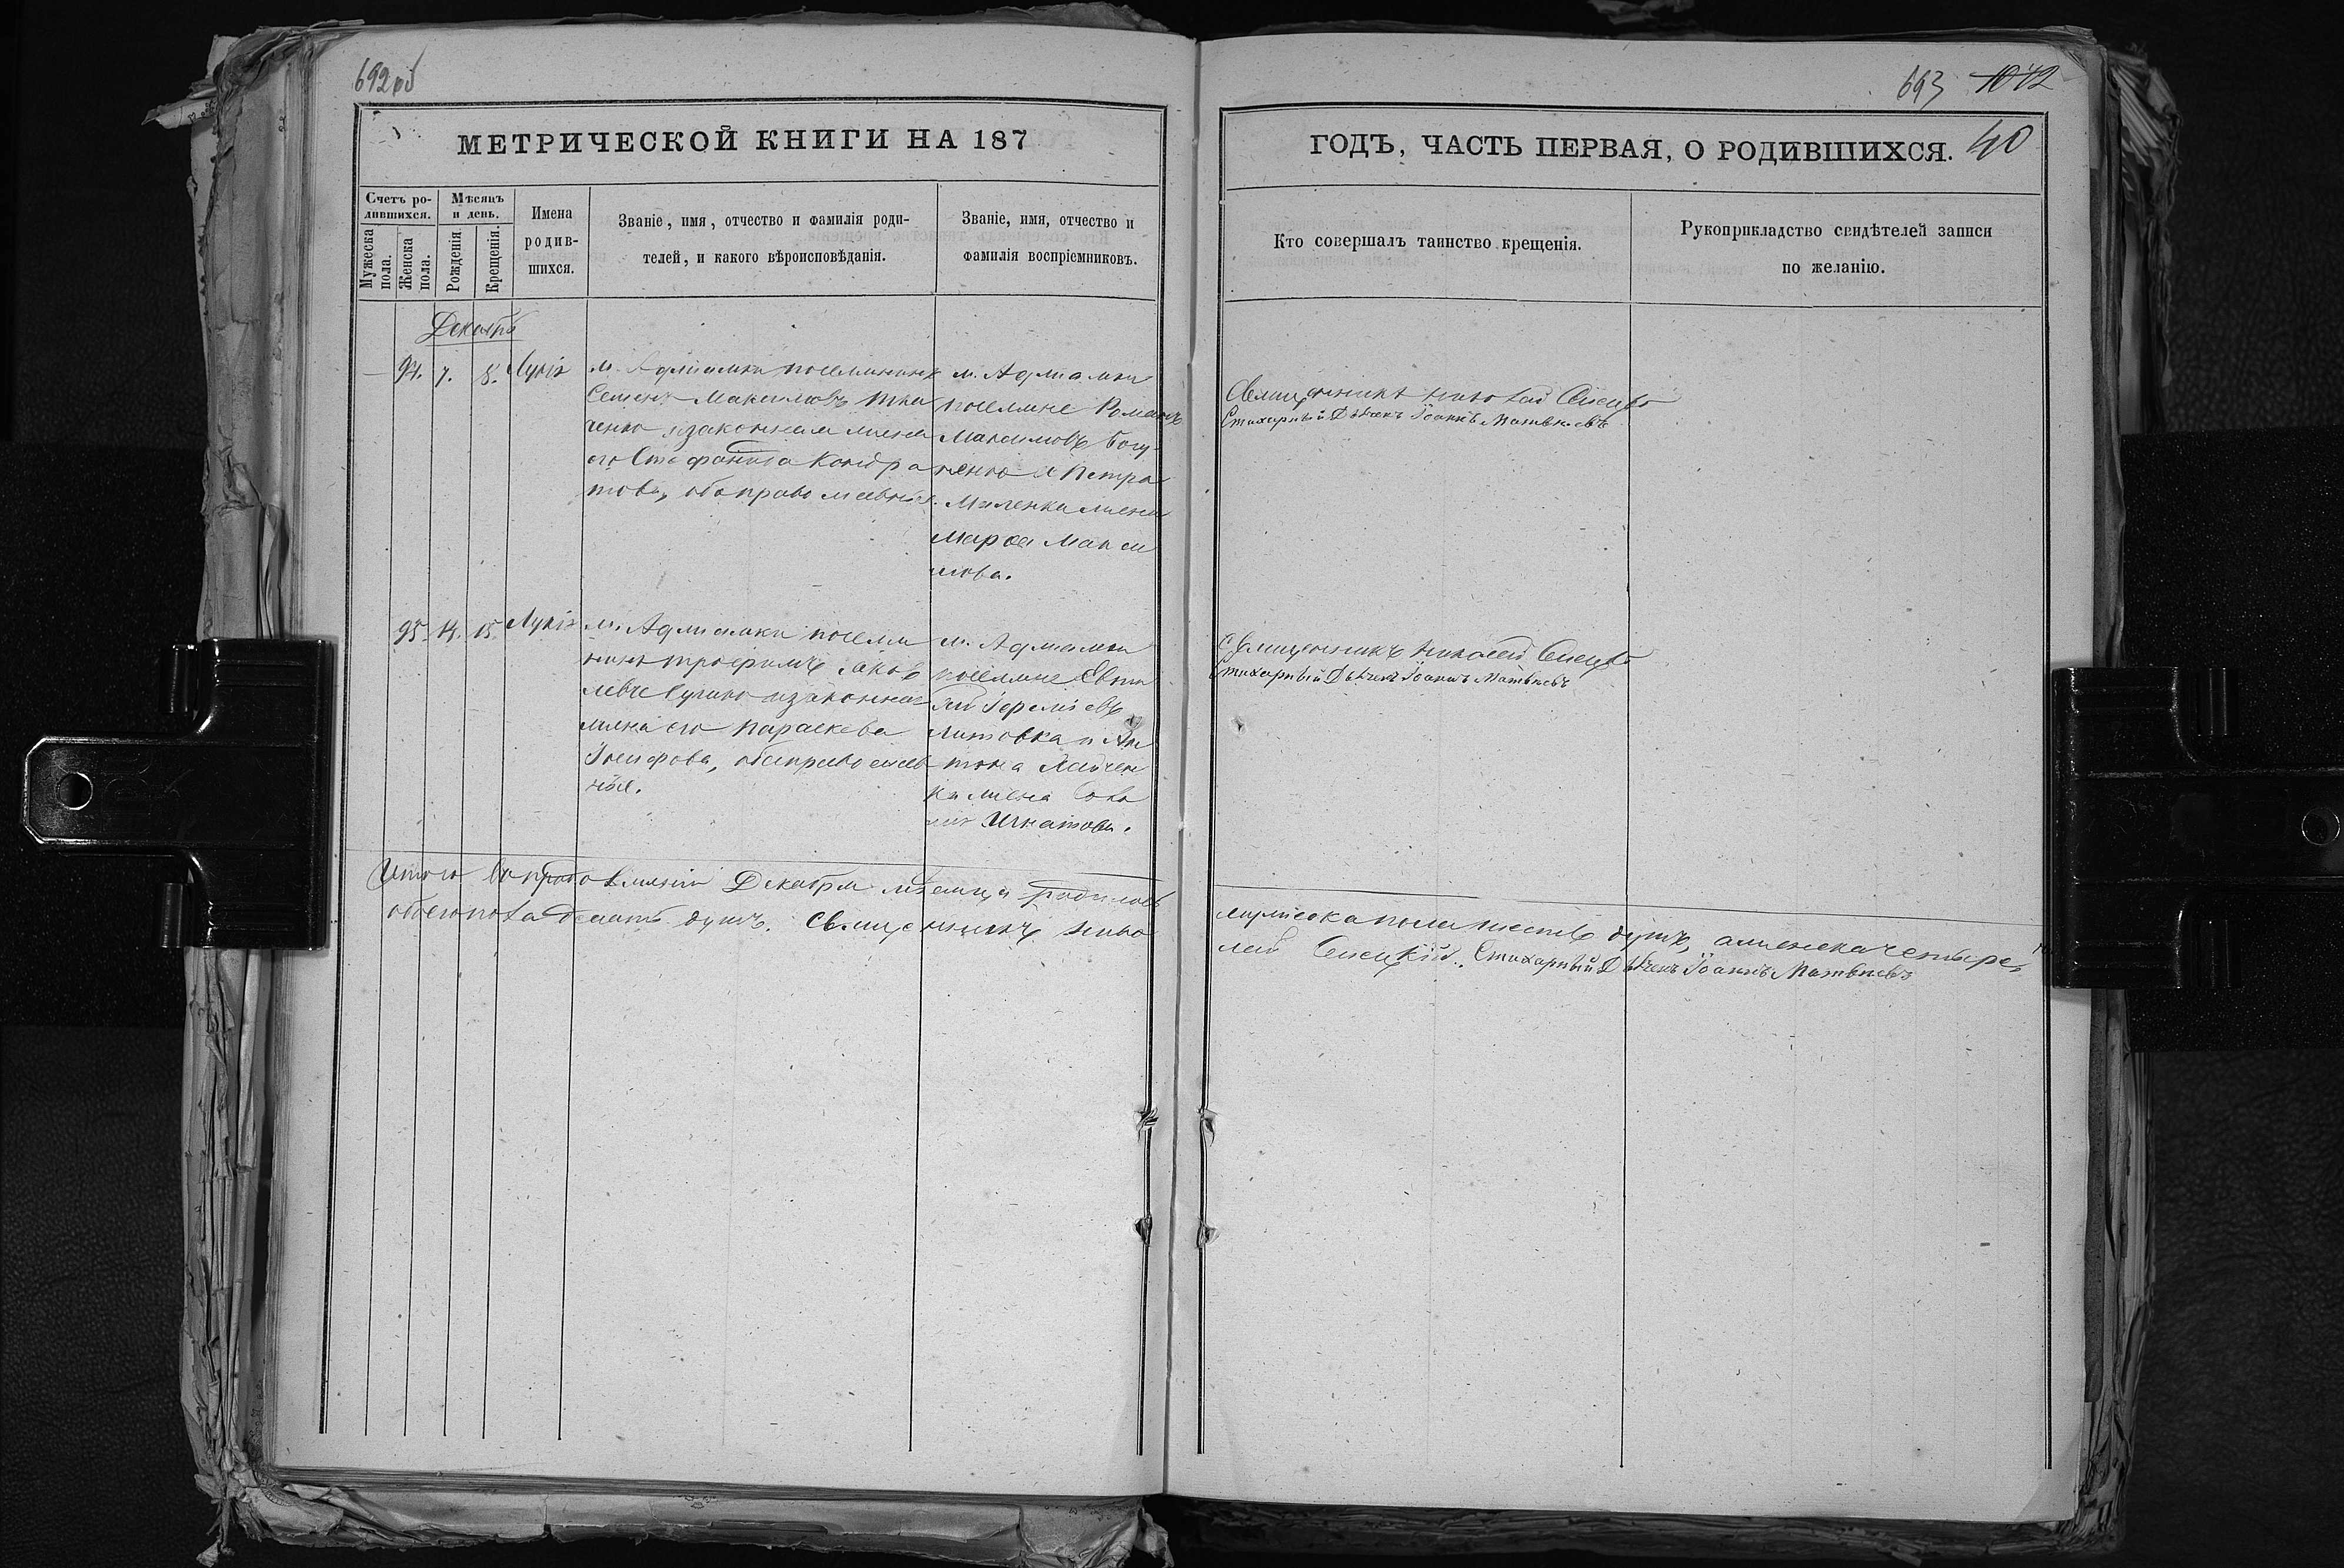 692 об
МЕТРИЧЕСКОЙ КНИГИ НА 187
Счетъ ро-
дившихся.
Мужеска
пола.
Женска
пола.
Мѣсяцъ
и день.
Рожденія.
Крещенія.
Имена
родив-
шихся.
Званіе, имя, отчество и фамилія роди-
телей, и какого вѣроисповѣданія.
Званіе, имя, отчество и
фамилія воспріемниковъ.
Декабрь
94. 7. 8. Лукія
м. Адмиамки поселянинъ
Семенъ Максимовъ Тка
ченко и законная жена
его Стефанида Кондра
това, оба православные.
м. Адмиамки
поселяне Романъ
Максимовъ Богу
ненко и Петра
жена
Марфа Макси
мова.
95. 14. 15. Лукія
м. Адмиамки поселя
нинъ Трофимъ Яков
левъ и законная
жена его Параскева
Іосифова, оба православ
ные.
м. Адмиамки
поселяне Евти
хій Іереміевъ
Литовка и Ан
тона
ка жена
Игнатова.
Итого въ продолженіи Декабря мѣсяца родилось
обоего пола десять душъ. Священникъ Нико
693 1042
ГОДЪ, ЧАСТЬ ПЕРВАЯ, О РОДИВШИХСЯ. 40
Кто совершалъ таинство крещенія.
Рукоприкладство свидѣтелей записи
по желанію.
Священникъ Николай
Стихарный Дьячекъ Іоаннъ Матвѣевъ
Священникъ Николай
Стихарный Дьячекъ Іоаннъ Матвѣевъ
мужеска пола шесть душъ, а женска четыре
лай Стихарный Дьячекъ Іоаннъ Матвѣевъ